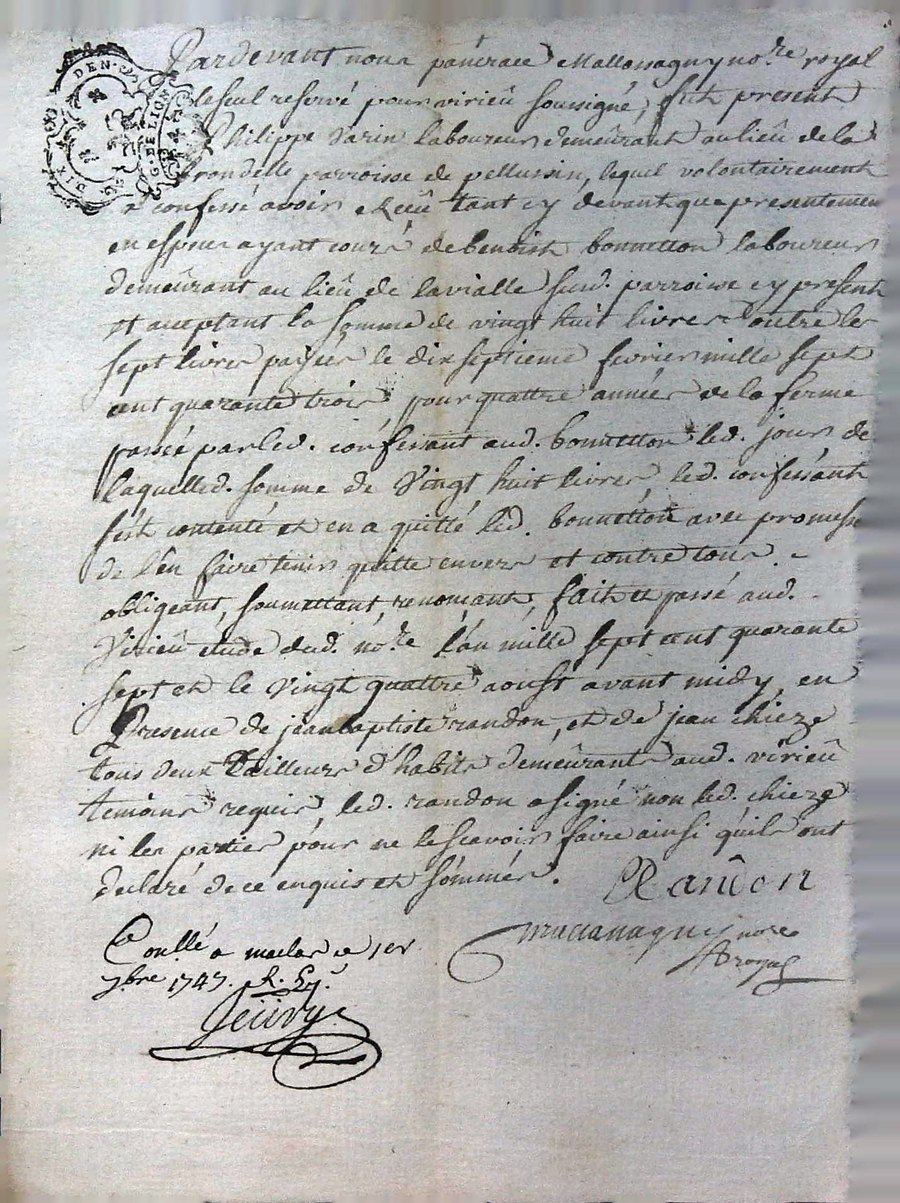 DIX DEN. G. DE LION
Pardevant nous pancrace Mallassagny no.re royal
le seul reservé pour virieu soussigné, fut present
Philippe Varin laboureur demeurant au lieu de la
rondelle parroisse de pellussin, lequel volontairement
a confessé avoir Reçeu tant cy devant que presentement
en espece ayant cours de benoist bonnetton laboureur
demeurant au lieu de lavialle susd. parroisse cy present
et acceptant la somme de vingt huit livres outre les
sept livres payées le dix septieme fevrier mille sept
cent quarante trois pour quattre années de la ferme
passé par led. confessant aud. bonnetton led. jour de
laquelled. somme de Vingt huit livres led. confessant
s'est contenté et en a quitté led. bonnetton avec promesse
de l'en faire tenir quitte envers et contre tous. -
obligeant, soumettant, renonçant, fait et passé aud. -
Virieu etude dud. no.re l'an mille sept cent quarante
sept et le vingt quattre aoust avant midy, en
Presence de jean baptiste randon, et de jean chieze
tous deux Tailleurs d'habits demeurants aud. virieu
temoins requis, led. randon a signé non led. chieze
ni les parties pour ne le scavoir faire ainsi qu'ils ont
declaré de ce enquis et sommés.
Randon
no.re
royal
Con.llé a maclas ce 1er
7bre 1747. R.